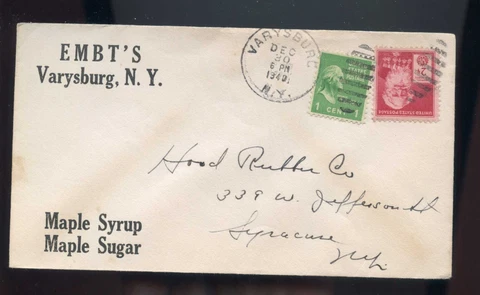 EMBT'S
Varysburg, N. Y.
VARYSBURG
DEC
30
6 PM
1940
N.Y.
1 CENT
UNITED STATES POSTAGE
2¢
Hood Rubber Co
339 W. Jefferson St
Syracuse
N.Y.
Maple Syrup
Maple Sugar